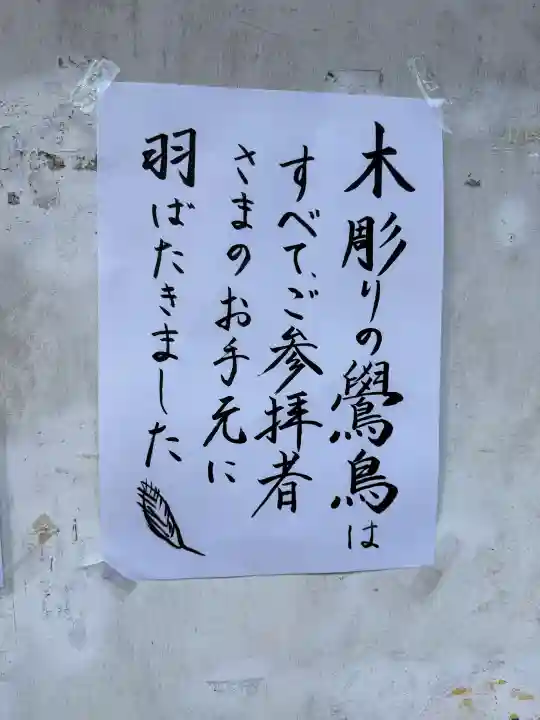 木彫りの鷽鳥は
すべて、ご参拝者
さまのお手元に
羽ばたきました